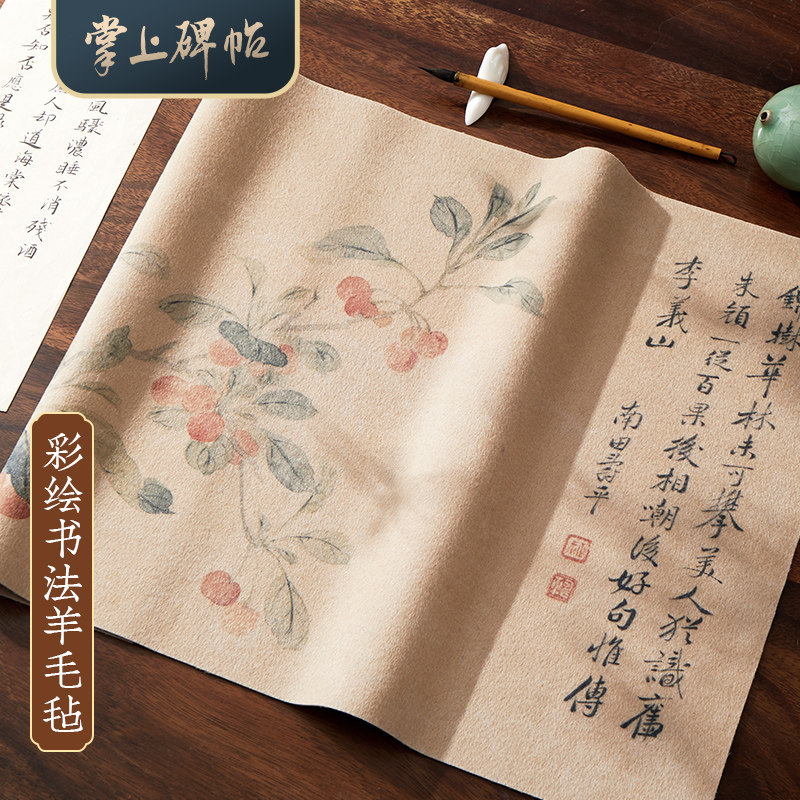 掌上碑帖
風驟濃睡不消殘酒
人却道海棠
否知否應是
錦樹華林未可攀美人猶識舊
朱顏一從百果後相嘲後好句惟傳
李義山
南田壽平
彩绘书法羊毛毡